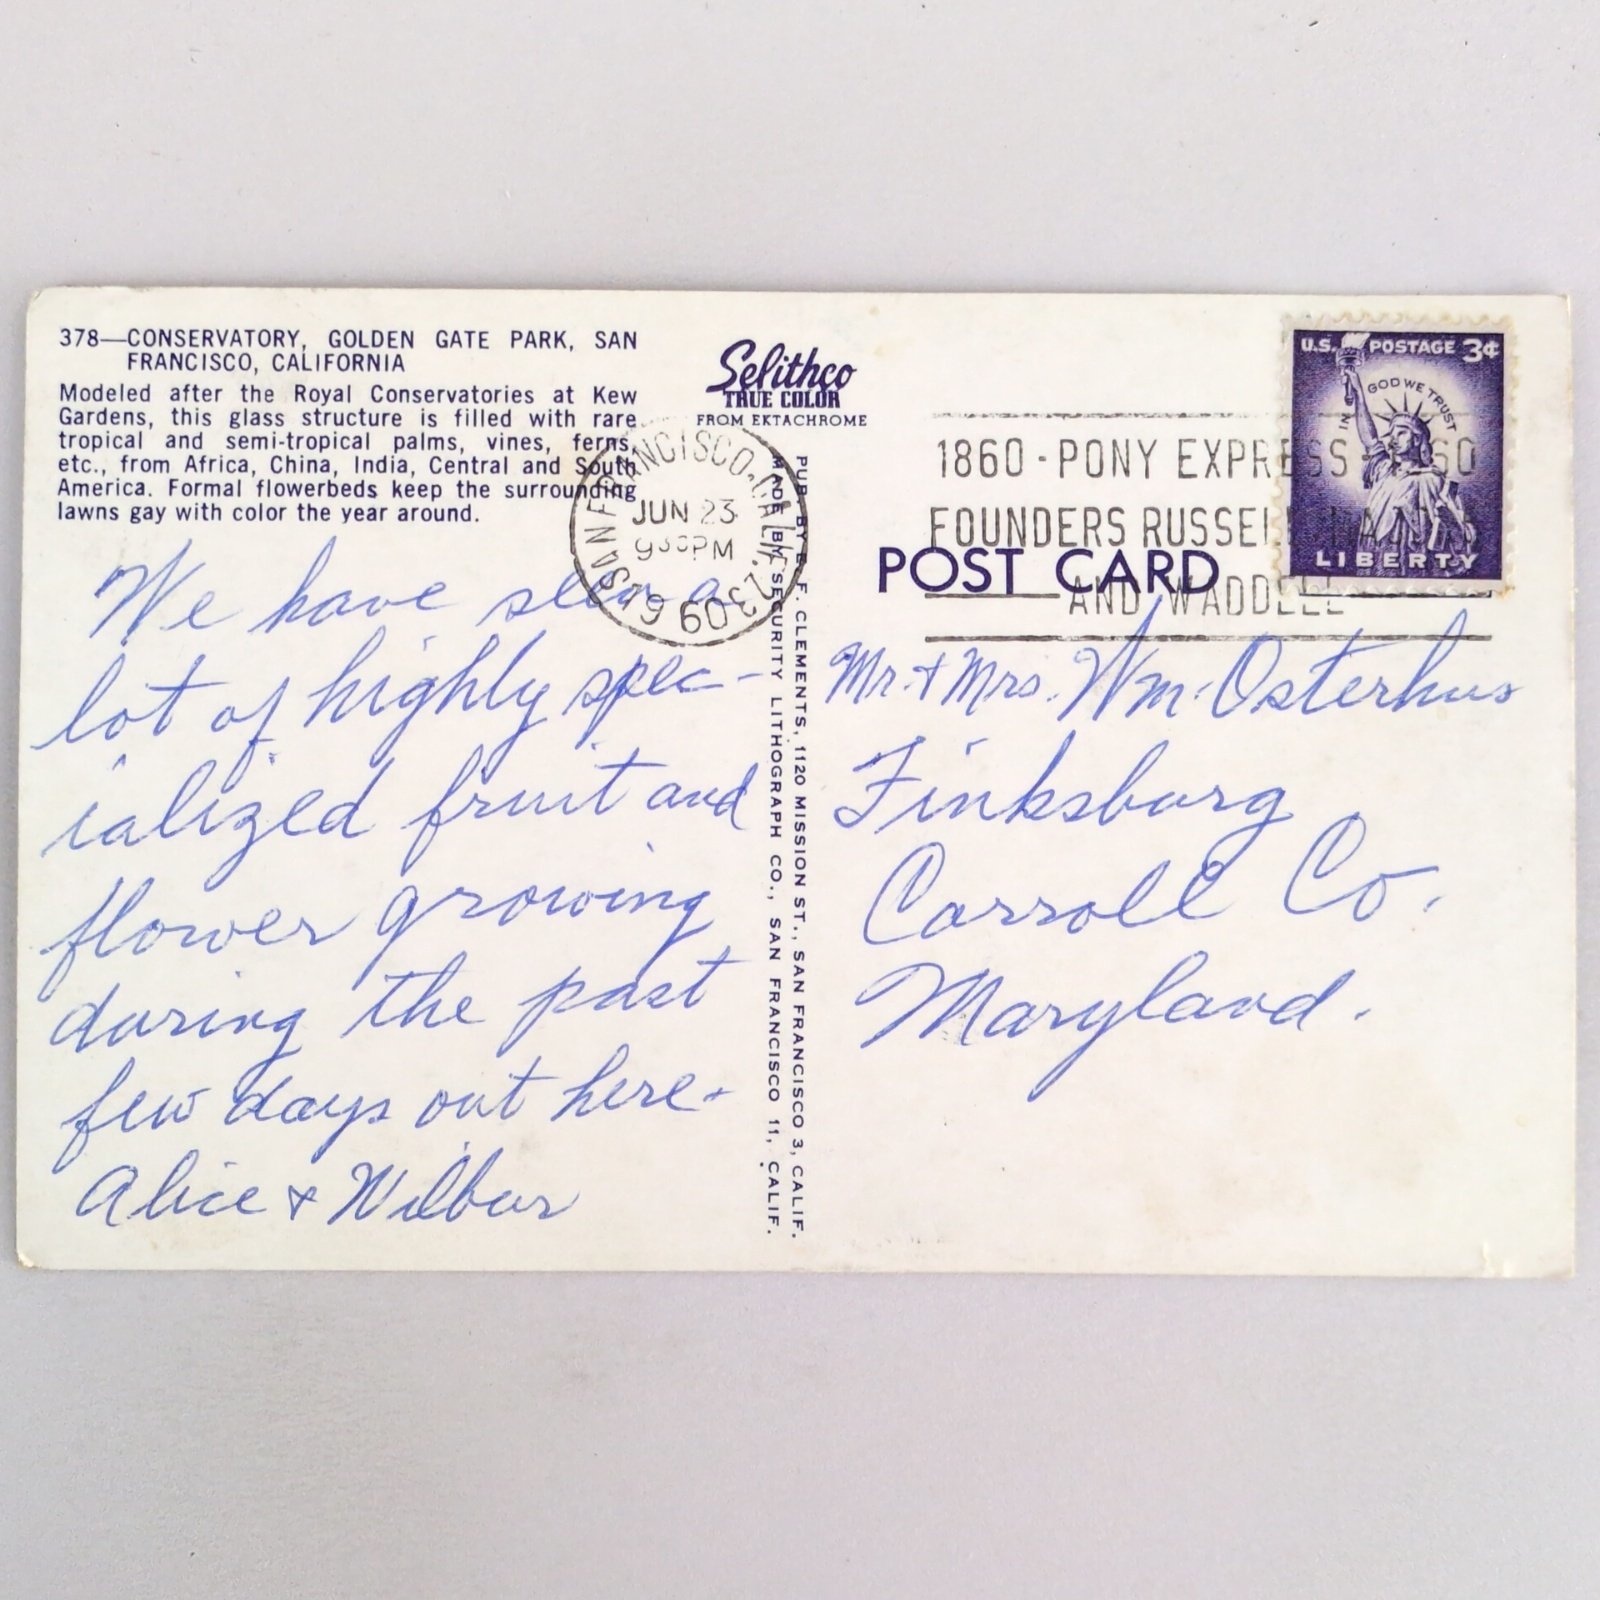 378—CONSERVATORY, GOLDEN GATE PARK, SAN
FRANCISCO, CALIFORNIA
Modeled after the Royal Conservatories at Kew
Gardens, this glass structure is filled with rare
tropical and semi-tropical palms, vines, ferns,
etc., from Africa, China, India, Central and South
America. Formal flowerbeds keep the surrounding
lawns gay with color the year around.
We have seen a
lot of highly spec-
ialized fruit and
flower growing
during the past
few days out here.
Alice & Wilbur
Selithco
TRUE COLOR
FROM EKTACHROME
SAN FRANCISCO, CALIF.
JUN 23
PM
1960
PUB. BY E. F. CLEMENTS, 1120 MISSION ST., SAN FRANCISCO 3, CALIF.
MADE BY SECURITY LITHOGRAPH CO., SAN FRANCISCO 11, CALIF.
U.S. POSTAGE 3¢
IN GOD WE TRUST
LIBERTY
1860 - PONY EXPRESS - 1960
FOUNDERS RUSSELL
AND WADDELL
POST CARD
Mr. & Mrs. Wm. Osterhus
Finksburg
Carroll Co.
Maryland.